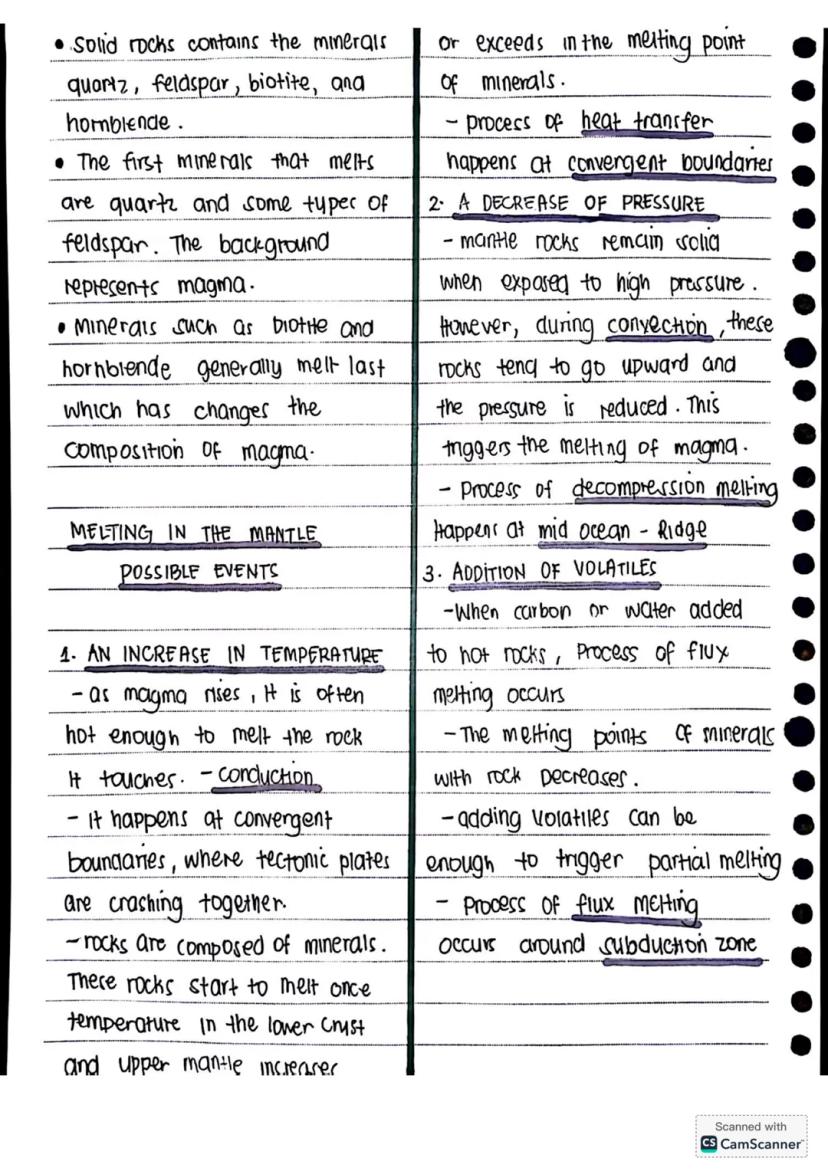 • Solid rocks contains the minerals
quartz, feldspar, biotite, and
hornblende.
• The first minerals that melts
are quartz and some types of
feldspar. The background
represents magma.
• Minerals such as biotite and
hornblende generally melt last
which has changes the
composition of magma.
MELTING IN THE MANTLE
POSSIBLE EVENTS
1. AN INCREASE IN TEMPERATURE
- as magma rises, It is often
hot enough to melt the rock
It touches. - conduction
- It happens at convergent
boundaries, where tectonic plates
are crashing together.
- rocks are composed of minerals.
These rocks start to melt once
temperature in the lower crust
and upper mantle increases
or exceeds in the melting point
of minerals.
- process of heat transfer
happens at convergent boundaries
2. A DECREASE OF PRESSURE
- mantle rocks remain solid
when exposed to high pressure.
However, during convection, these
rocks tend to go upward and
the pressure is reduced. This
triggers the melting of magma.
- Process of decompression melting
Happens at mid ocean - Ridge
3. ADDITION OF VOLATILES
- When carbon or water added
to hot rocks, Process of flux
melting occurs
- The melting points of minerals
with rock Decreases.
- adding volatiles can be
enough to trigger partial melting
- Process of flux melting
occurs around subduction zone
Scanned with
CS CamScanner